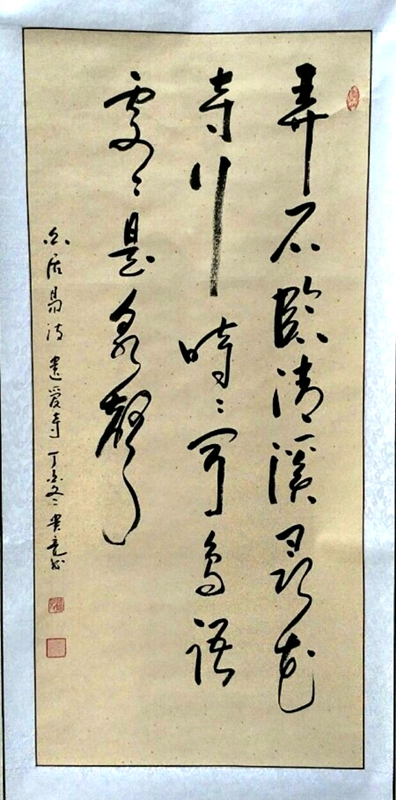 弄石臨清溪尋花
寺行時〻聞鳥語
處〻是泉聲
白居易詩 遺愛寺 丁亥冬